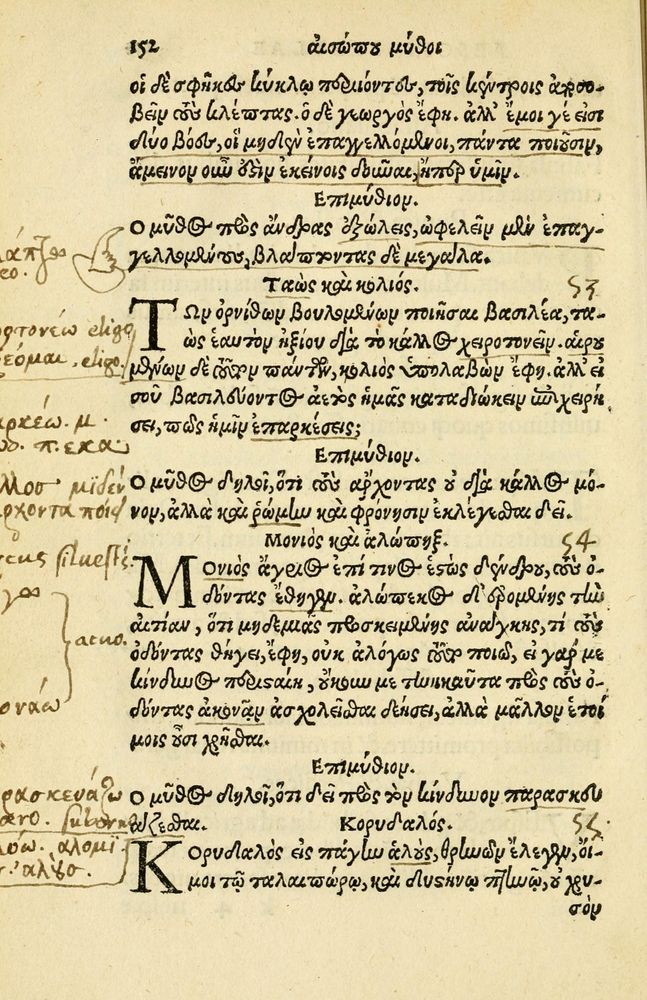 152 αἰσώπου μῦθοι
οἱ δὲ σφῆκες κύκλῳ περιιόντες, τοῖς κέντροις ἀποσο-
βεῖν τοὺς κλέπτας. ὁ δὲ γεωργὸς ἔφη. ἀλλ' ἔμοι γέ εἰσι
δύο βόες, οἳ μηδὲν ἐπαγγελλόμενοι, πάντα ποιοῦσιν,
ἄμεινον οὖν ὅτιν ἐκείνοις δοῦναι, ἤπερ ὑμῖν.
Ἐπιμύθιον.
Ο μῦθος πρὸς ἄνδρας ἐξώλεις, ὠφελεῖν μὲν ἐπαγ-
γελλομένους, βλάπτοντας δὲ μεγάλα.
Ταὼς καὶ κολιός. 53
Τῶν ὀρνίθων βουλομένων ποιῆσαι βασιλέα, τα-
ὼς ἑαυτὸν ἠξίου διὰ τὸ κάλλος χειροτονεῖν. αἱρου
μένων δὲ τοῦτον πάντων, κολιὸς ὑπολαβὼν ἔφη. ἀλλ' εἰ
σοῦ βασιλεύοντος ἀετὸς ἡμᾶς καταδιώκειν ἐπιχειρή
σει, πῶς ἡμῖν ἐπαρκέσεις;
Ἐπιμύθιον.
Ο μῦθος δηλοῖ, ὅτι τοὺς ἄρχοντας οὐ διὰ κάλλος μό-
νον, ἀλλὰ καὶ ῥώμην καὶ φρόνησιν ἐκλέγεσθαι δεῖ.
Μονιὸς καὶ ἀλώπηξ. 54
Μονιὸς ἄγριος ἐπί τινος ἑστὼς δένδρου, τοὺς ὀ-
δόντας ἔθηγεν. ἀλώπεκος δ' ἐρομένης τὴν
αἰτίαν, ὅτι μηδεμιᾶς προσκειμένης ἀνάγκης, τί τοὺς
ὀδόντας θήγει, ἔφη, οὐκ ἀλόγως τοῦτο ποιῶ, εἰ γάρ με
κίνδυνος περισταίη, οὔκουν με τηνικαῦτα πρὸς τοὺς ὀ-
δόντας ἀκονᾷν ἀσχολεῖσθαι δεήσει, ἀλλὰ μᾶλλον ἑτοί
μοις οὖσι χρῆσθαι.
Ἐπιμύθιον.
Ο μῦθος δηλοῖ, ὅτι δεῖ πρὸς τὸν κίνδυνον παρασκευ
άζεσθαι. Κορυδαλός. 55
Κορυδαλὸς εἰς πάγην ἁλοὺς, θρηνῶν ἔλεγεν, οἴ-
μοι τῷ ταλαιπώρῳ, καὶ δυστήνῳ πτηνῷ, οὐ χρυ-
σὸν
eligo
εόμαι. eligo.
αρκέω. μ.
acuo.
ονάω
ρασκευάζω